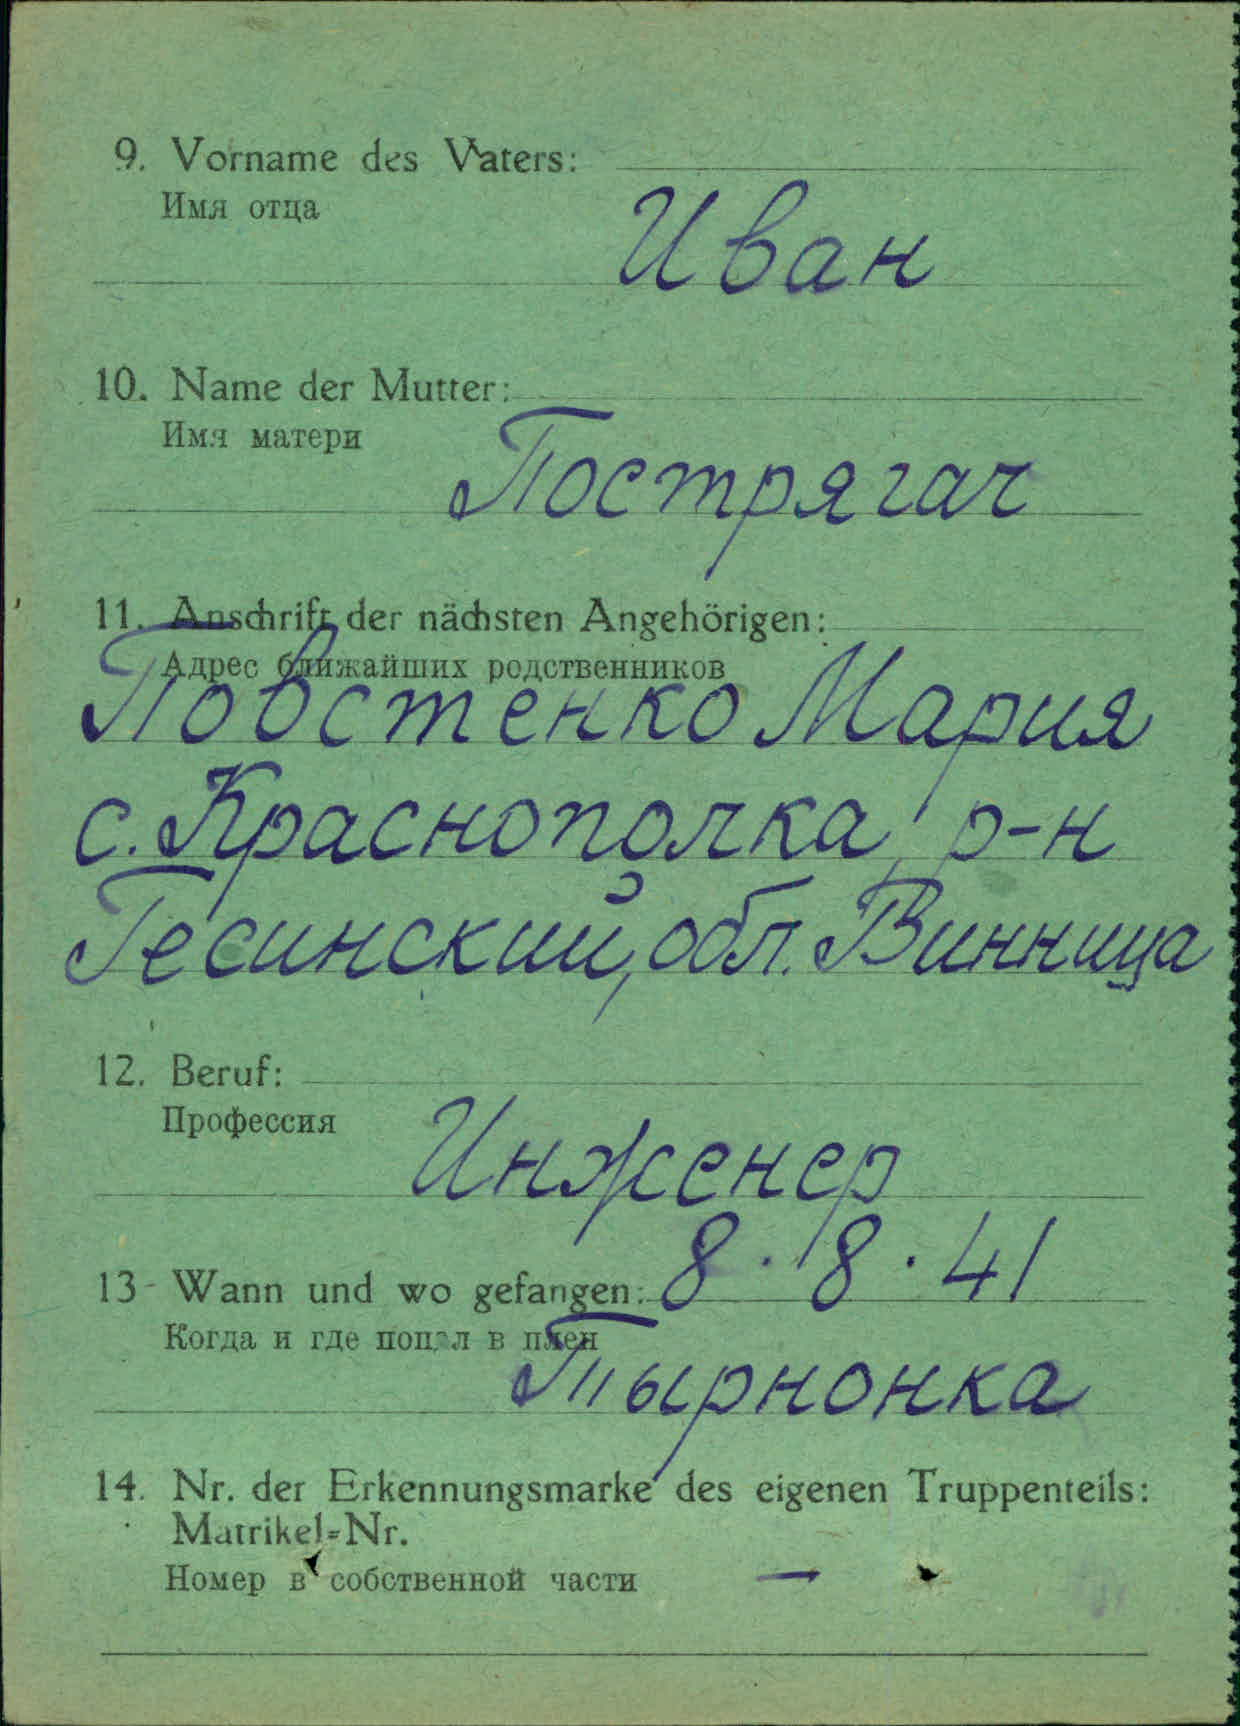 9. Vorname des Vaters:
Имя отца
Иван
10. Name der Mutter:
Имя матери
Пострягач
11. Anschrift der nächsten Angehörigen:
Адрес ближайших родственников
Повстенко Мария
с. Краснополка, р-н
Гесинский, обл. Винница
12. Beruf:
Профессия
Инженер
13 - Wann und wo gefangen: 8.8.41
Когда и где попал в плен
Тырнонка
14. Nr. der Erkennungsmarke des eigenen Truppenteils:
Matrikel=Nr.
Номер в собственной части —